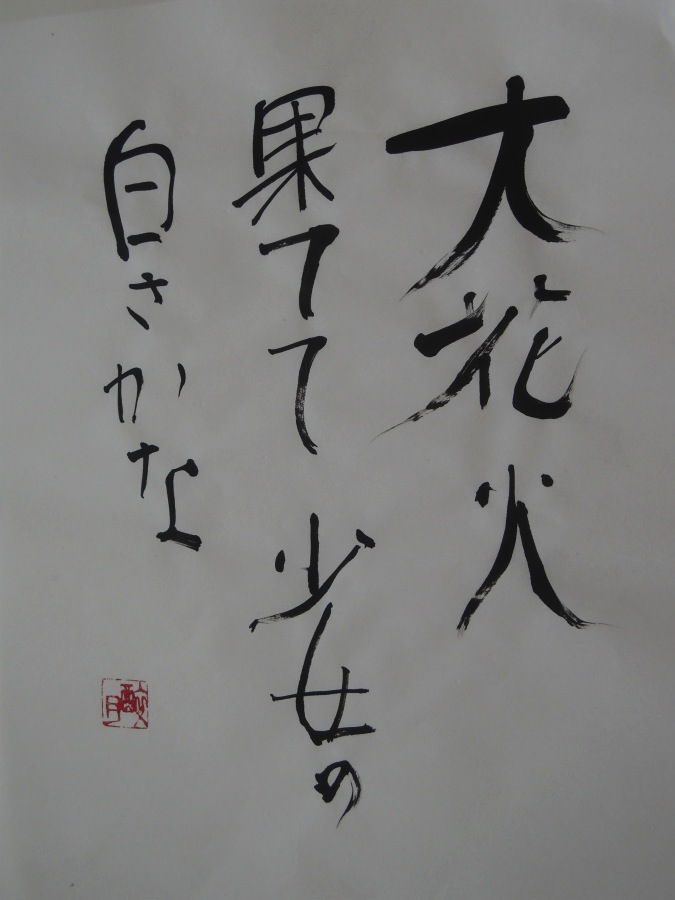 大花火
果てて少女の
白さかな